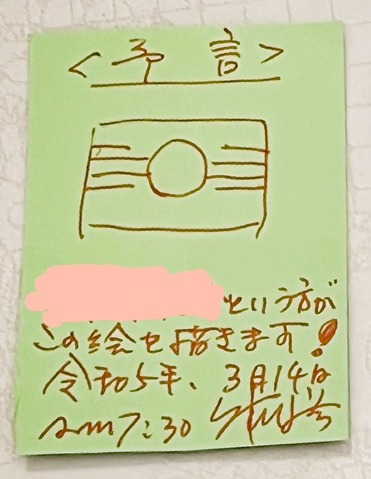 <予言>
という方が
この絵を描きます!
令和5年、3月14日
am7:30